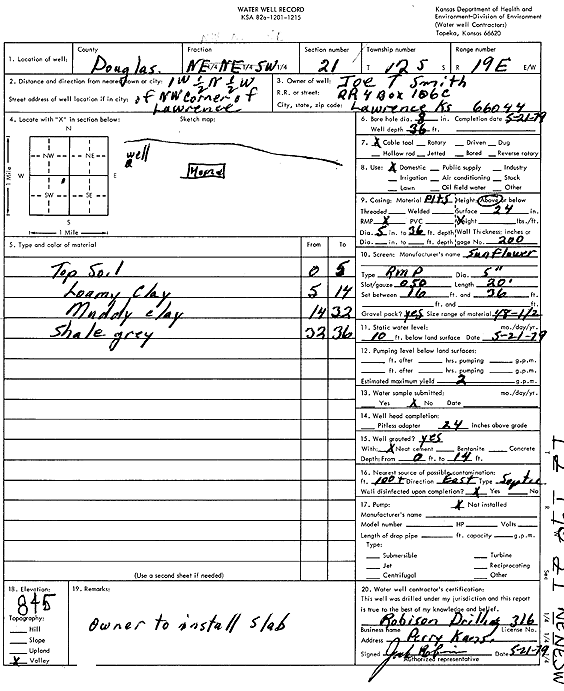 WATER WELL RECORD
KSA 82a-1201-1215
Kansas Department of Health and
Environment-Division of Environment
(Water well Contractors)
Topeka, Kansas 66620
1. Location of well:
County
Douglas
Fraction
NE 1/4 NE 1/4 SW 1/4
Section number
21
Township number
T 12 S S
Range number
R 19E E/W
2. Distance and direction from nearest town or city: 1W ½N ½W
Street address of well location if in city: of NW Corner of
Lawrence
3. Owner of well: Joe T Smith
R.R. or street: RR 4 Box 106C
City, state, zip code: Lawrence Ks 66044
4. Locate with "X" in section below:
Sketch map:
N
NW NE
W E
SW SE
S
1 Mile
1 Mile
well
Home
6. Bore hole dia. 8 in. Completion date 5-21-79
Well depth 36 ft.
7. X Cable tool Rotary Driven Dug
Hollow rod Jetted Bored Reverse rotary
8. Use: X Domestic Public supply Industry
Irrigation Air conditioning Stock
Lawn Oil field water Other
9. Casing: Material Plts Height: Above or below
Threaded Welded Surface 24 in.
RMP X PVC Weight lbs./ft.
Dia. 5 in. to 36 ft. depth Wall Thickness: inches or
Dia. in. to ft. depth gage No. 200
10. Screen: Manufacturer's name Sunflower
Type RMP Dia. 5"
Slot/gauze 050 Length 20'
Set between 16 ft. and 36 ft.
ft. and ft.
Gravel pack? yes Size range of material 48-1/2
11. Static water level: mo./day/yr.
10 ft. below land surface Date 5-21-79
12. Pumping level below land surfaces:
ft. after hrs. pumping g.p.m.
ft. after hrs. pumping g.p.m.
Estimated maximum yield 2 g.p.m.
13. Water sample submitted: mo./day/yr.
Yes X No Date
14. Well head completion:
Pitless adapter 24 inches above grade
15. Well grouted? yes
With: X Neat cement Bentonite Concrete
Depth: From 0 ft. to 14 ft.
16. Nearest source of possible contamination:
ft. 100+ Direction East Type Septic
Well disinfected upon completion? X Yes No
17. Pump: X Not installed
Manufacturer's name
Model number HP Volts
Length of drop pipe ft. capacity g.p.m.
Type:
Submersible Turbine
Jet Reciprocating
Centrifugal Other
5. Type and color of material From To
Top Soil 0 5
Loamy Clay 5 14
Muddy clay 14 32
Shale grey 32 36
(Use a second sheet if needed)
18. Elevation:
845
Topography:
Hill
Slope
Upland
X Valley
19. Remarks:
owner to install Slab
20. Water well contractor's certification:
This well was drilled under my jurisdiction and this report
is true to the best of my knowledge and belief.
Robison Drilling 316
Business name License No.
Address Perry Kans.
Signed Date 5-21-79
Authorized representative
T R Sec 1/4 1/4 1/4
12 19E 21 NENESW